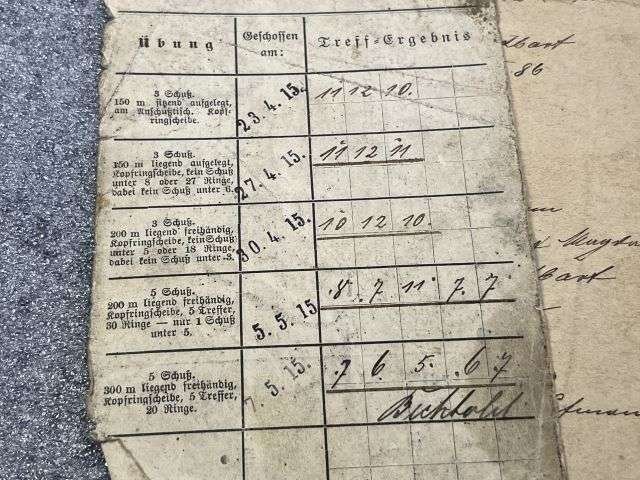 Übung
Geschossen
am:
Treff-Ergebnis
3 Schuß.
150 m sitzend aufgelegt,
am Anschußtisch. Kopf-
ringscheibe.
23. 4. 15.
11 12 10.
3 Schuß.
150 m liegend aufgelegt,
Kopfringscheibe, kein Schuß
unter 8 oder 27 Ringe,
dabei kein Schuß unter 6.
27. 4. 15.
11 12 11
3 Schuß.
200 m liegend freihändig,
Kopfringscheibe, kein Schuß
unter 5 oder 18 Ringe,
dabei kein Schuß unter 3.
30. 4. 15.
10 12 10.
5 Schuß.
200 m liegend freihändig,
Kopfringscheibe, 5 Treffer,
30 Ringe — nur 1 Schuß
unter 5.
5. 5. 15
8 7 11 7 7
5 Schuß.
300 m liegend freihändig,
Kopfringscheibe, 5 Treffer,
20 Ringe.
7. 5. 15.
7 6 5 6 7
Bechtold
86